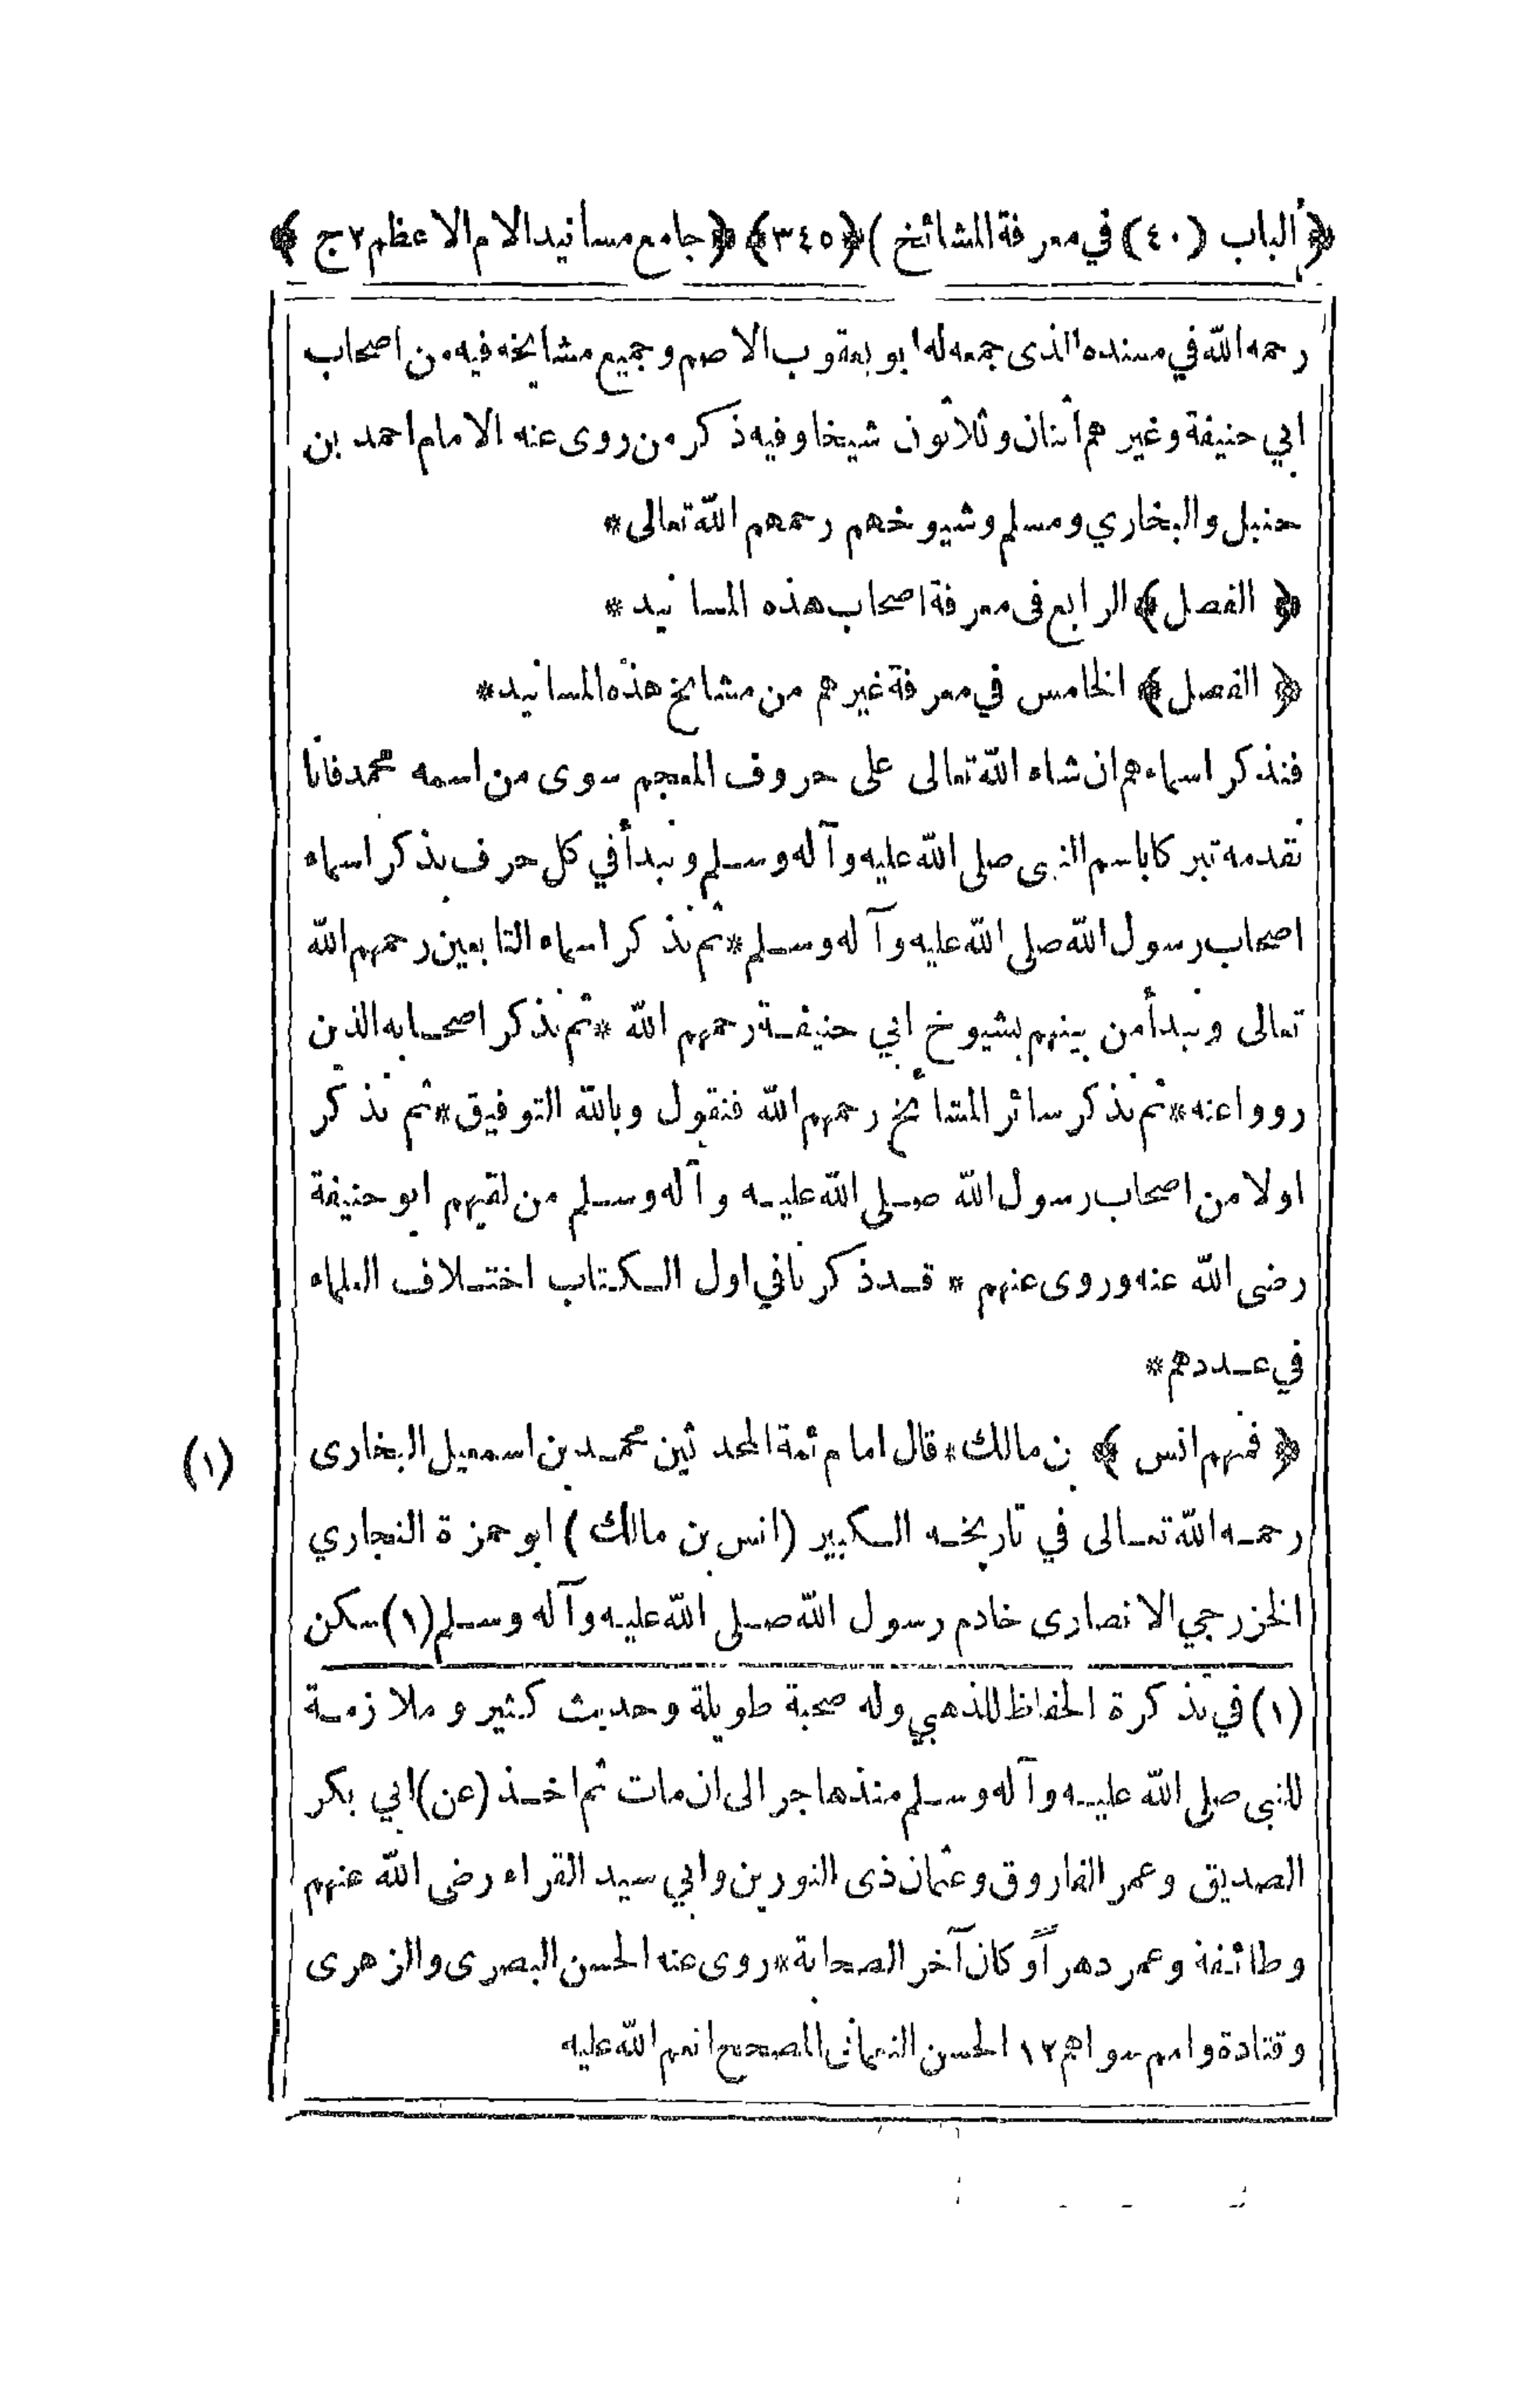 ﴿ الباب (٤٠) في معرفة المشائخ ) ﴿٣٤٥﴾ ﴿ جامع مسانيد الامام الاعظم ٢ ج ﴾
رحمه الله في مسنده الذى جمعه له ابو يعقوب الاصم وجميع مشايخه فيه من اصحاب
ابي حنيفة وغيرهم اثنان وثلاثون شيخا وفيه ذكر من روى عنه الامام احمد بن
حنبل والبخاري ومسلم وشيوخهم رحمهم الله تعالى*
﴿ الفصل ﴾ الرابع فى معرفة اصحاب هذه المسانيد *
﴿ الفصل ﴾ الخامس في معرفة غيرهم من مشايخ هذه المسانيد*
فنذكر اسماءهم ان شاء الله تعالى على حروف المعجم سوى من اسمه محمد فانا
نقدمه تبركا باسم النبى صلى الله عليه وآله وسلم ونبدأ في كل حرف بذكر اسماء
اصحاب رسول الله صلى الله عليه وآله وسلم*ثم نذكر اسماء التابعين رحمهم الله
تعالى ونبدأ من بينهم بشيوخ ابي حنيفة رحمهم الله *ثم نذكر اصحابه الذين
رووا عنه*ثم نذكر سائر المشايخ رحمهم الله فنقول وبالله التوفيق*ثم نذكر
اولا من اصحاب رسول الله صلى الله عليه وآله وسلم من لقيهم ابو حنيفة
رضى الله عنه وروى عنهم * قد ذكرنا في اول الكتاب اختلاف العلماء
في عددهم*
﴿ فمنهم انس ﴾ بن مالك*قال امام ئمة المحدثين محمد بن اسمعيل البخارى (١)
رحمه الله تعالى في تاريخه الكبير (انس بن مالك ) ابو حمزة النجاري
الخزرجي الانصارى خادم رسول الله صلى الله عليه وآله وسلم(١)سكن
(١) في تذكرة الحفاظ للذهبي وله صحبة طويلة وحديث كثير و ملازمة
للنبى صلى الله عليه وآله وسلم منذ هاجر الى ان مات ثم اخذ (عن) ابي بكر
الصديق وعمر الفاروق وعثمان ذى النورين وابي سيد القراء رضى الله عنهم
وطائفة وعمر دهرا وكان آخر الصحابة*روى عنه الحسن البصرى والزهرى
وقتادة وامم سواهم ١٢ الحسن النعمانى المصحح انعم الله عليه